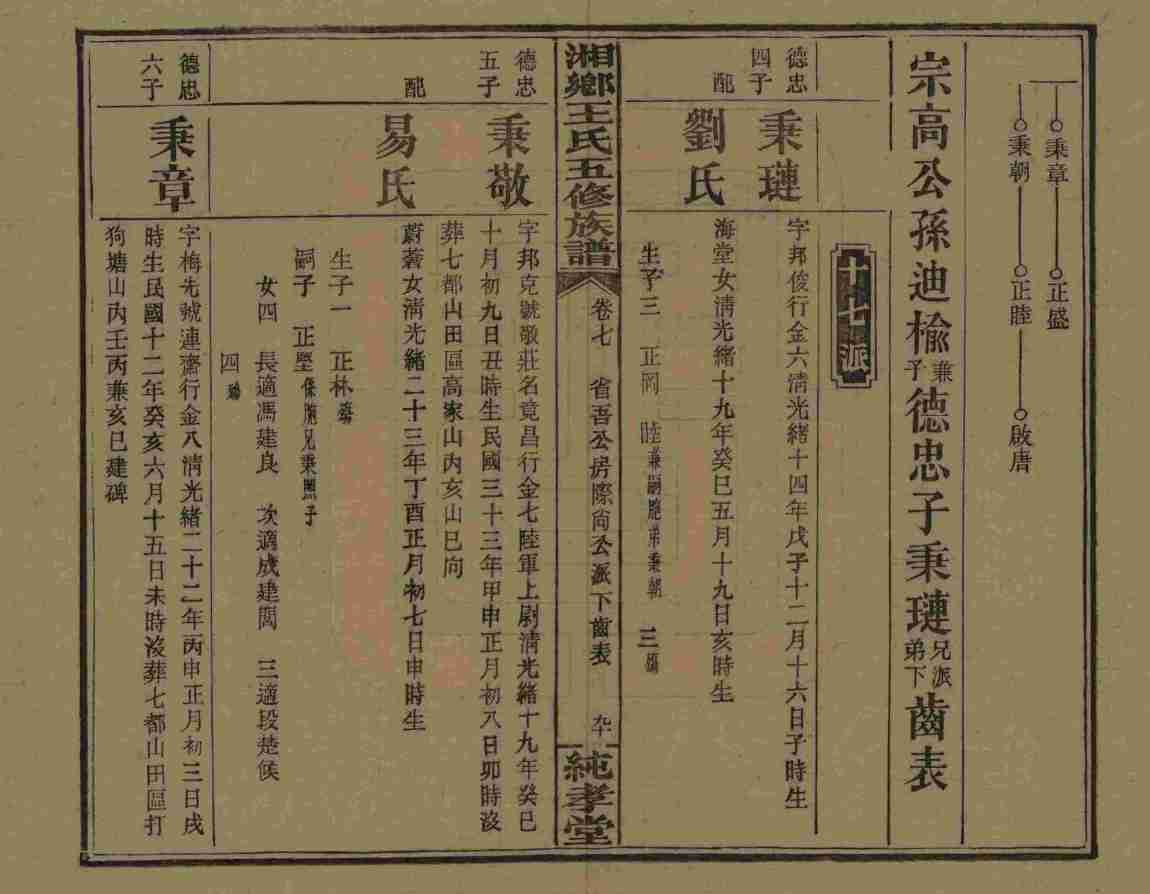 秉章 正盛
秉朝 正睦 啟唐
宗高公孫迪榆兼子德忠子秉璉兄弟派下齒表
十七派
德忠四子
秉璉
字邦俊行金六清光緒十四年戊子十二月十六日子時生
配
劉氏
海堂女清光緒十九年癸巳五月十九日亥時生
生子三 正岡 睦兼嗣胞弟秉朝 三殤
湘鄉王氏五修族譜
卷七 省吾公房際尚公派下齒表
純孝堂
德忠五子
秉敬
字邦克號敬莊名竟昌行金七陸軍上尉清光緒十九年癸巳
十月初九日丑時生民國三十三年甲申正月初八日卯時沒
葬七都山田區高家山內亥山巳向
配
易氏
蔚蒼女清光緒二十三年丁酉正月初七日申時生
生子一 正林殤
嗣子 正堅係胞兄秉照子
女四 長適馮建良 次適成建閣 三適段楚候
四殤
德忠六子
秉章
字梅先號連齋行金八清光緒二十二年丙申正月初三日戌
時生民國十二年癸亥六月十五日未時沒葬七都山田區打
狗塘山內壬丙兼亥巳建碑